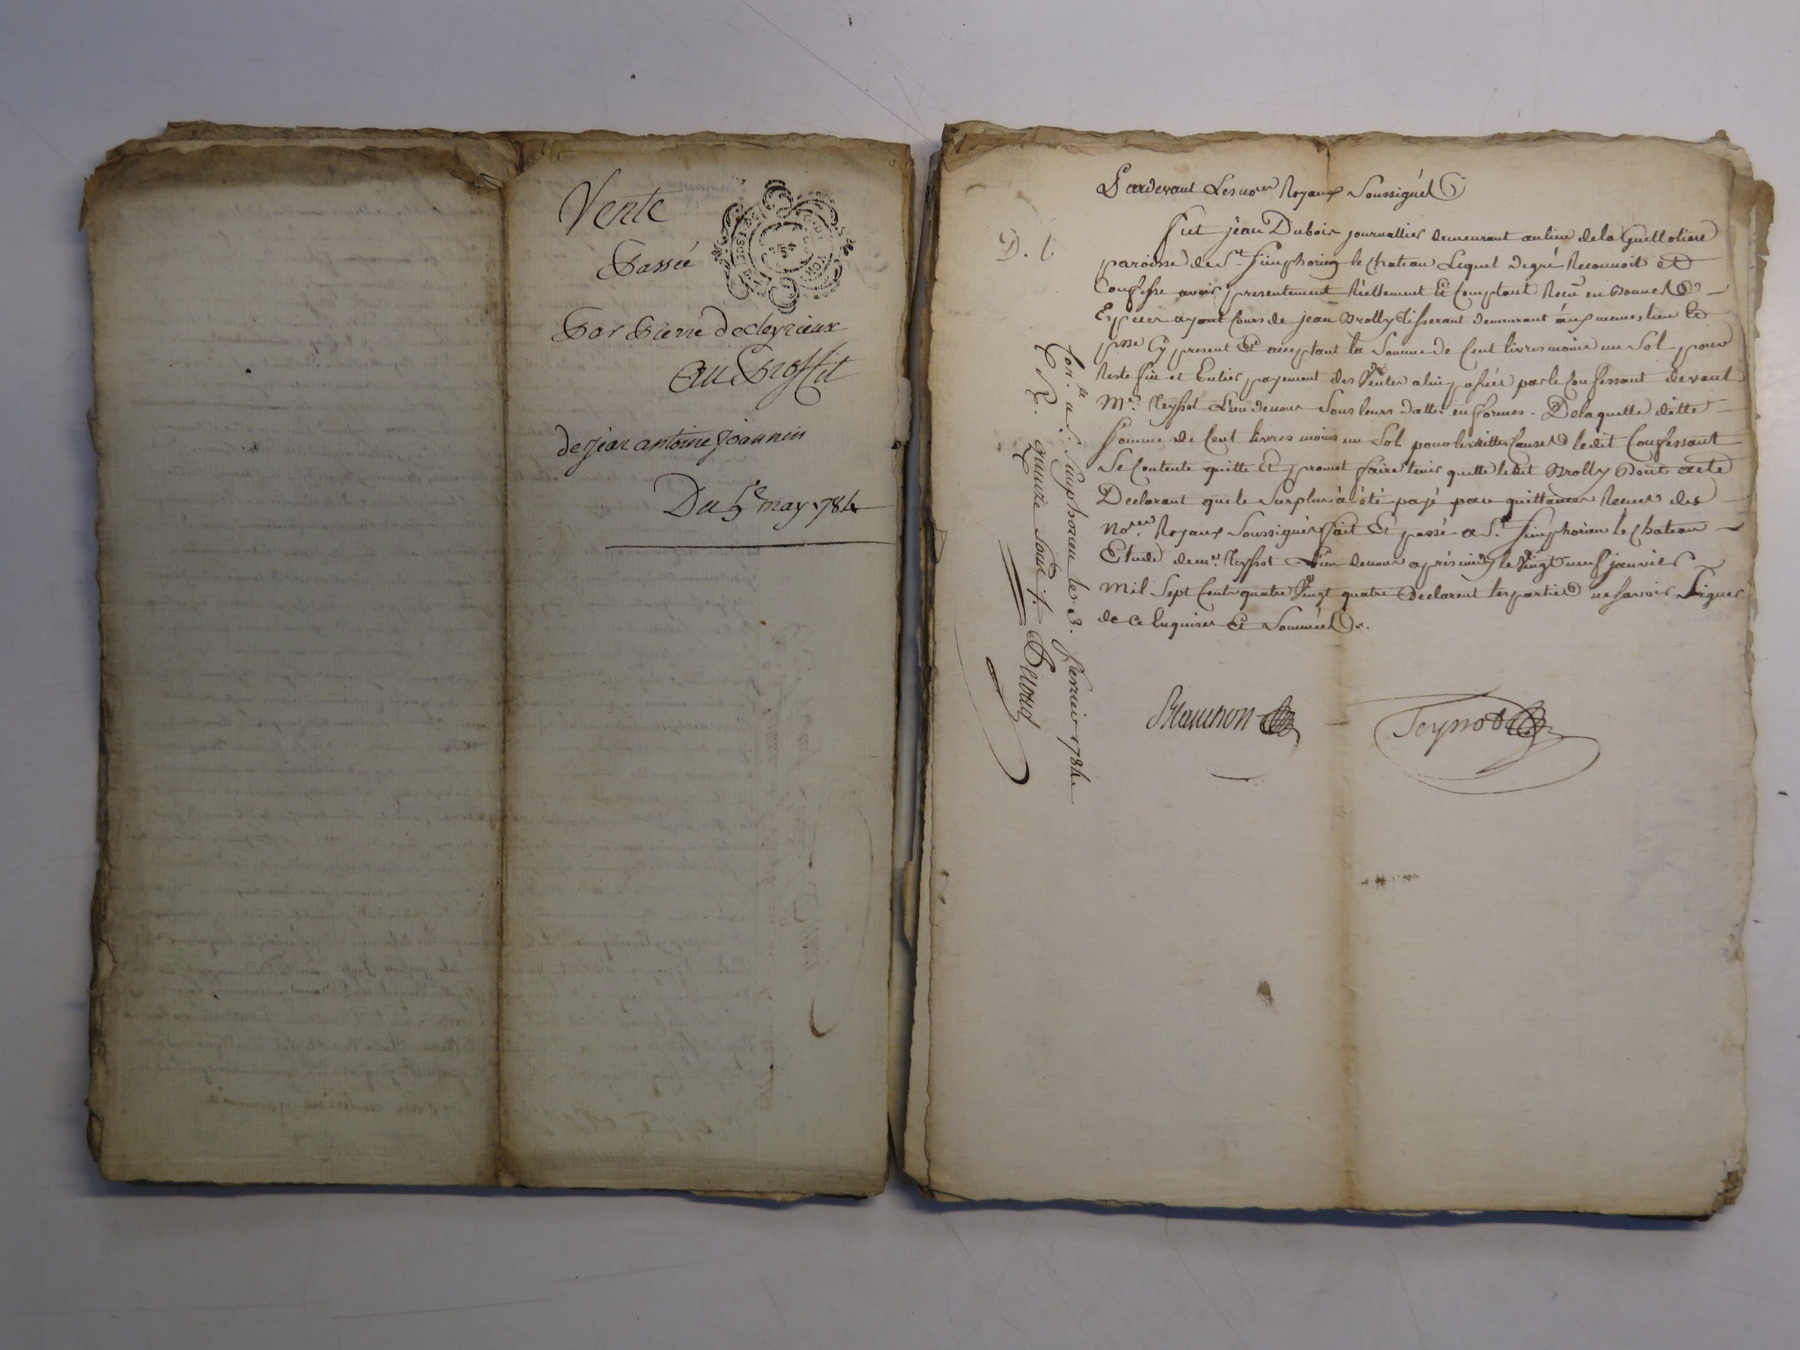 Vente
Passée
Par Pierre decleyrieux
au Proffit
de jean antoine joannin
Du 5e may 1784
D. l.
Pardevant Les nores Royaux Soussignés
fut jean Dubois journallier demeurant au lieu de la Guillotiere
paroisse de St. Simphorien le Chateau Lequel de gré Reconnoit et
Confesse avoir presentement Réellement Et Comptant Reçu en bonnes
Especes ayant Cours de jean Drolly tisserant demeurant aux memes lieu Et
psse Cy present Et acceptant la Somme de Cent livres moins un Sol pour
Reste fin et Entier payement des Ventes a luy passées par le Confessant devant
Me. Teyssot L'un de nous Sous leurs dattes en formes. De laquelle ditte
Somme de Cent livres moins un Sol pour les dittes Causes ledit Confessant
Se Contente quitte Et promet faire tenir quitte ledit Drolly Dont acte
Declarant que le Surplus a été payé par quittances Recues des
Nores Royaux Soussignés fait Et passé a St. Simphorien le Chateau
Etude de me. Teyssot L'un de nous après midy le Vingt neuf janvier
Mil Sept Cent quatre Vingt quatre Declarent les parties ne savoir Signer
de ce Enquises Et Sommées.
Con.le a St. Simphorien le 3. fevrier 1784
R. quinze sous